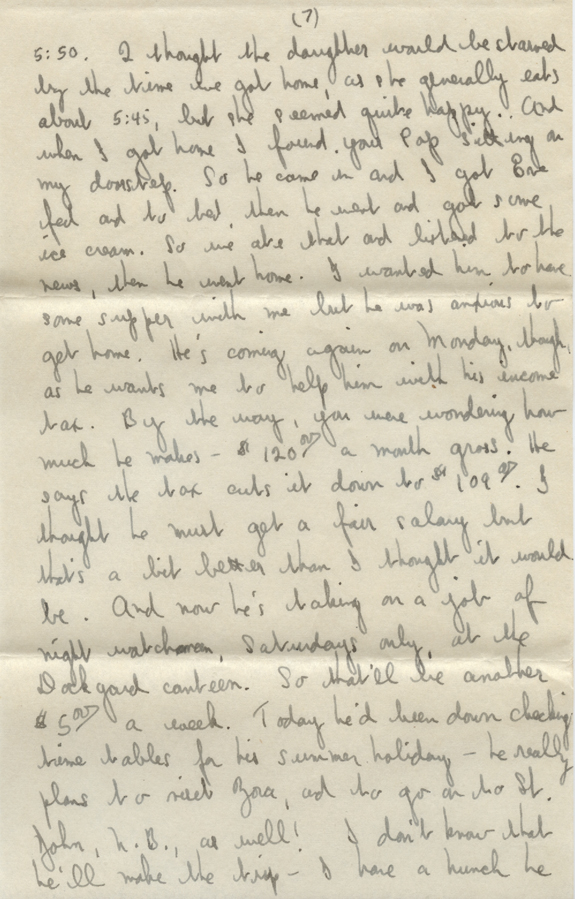 (7)
5:50. I thought the daughter would be starved
by the time we got home, as she generally eats
about 5:45, but she seemed quite happy.. And
when I got home I found your Pop sitting on
my doorstep. So he came in and I got Eve
fed and to bed, then he went and got some
ice cream. So we ate that and listened to the
news, then he went home. I wanted him to have
some supper with me but he was anxious to
get home. He's coming again on Monday, though,
as he wants me to help him with his income
tax. By the way, you were wondering how
much he makes - $120.00 a month gross. He
says the tax cuts it down to $109.00. I
thought he must get a fair salary but
that's a bit better than I thought it would
be. And now he's taking on a job of
night watchman, Saturdays only, at the
Dockyard canteen. So that'll be another
$5.00 a week. Today he'd been down checking
time tables for his summer holiday - he really
plans to visit , and to go on to St.
John, N.B., as well! I don't know that
he'll make the trip - I have a hunch he